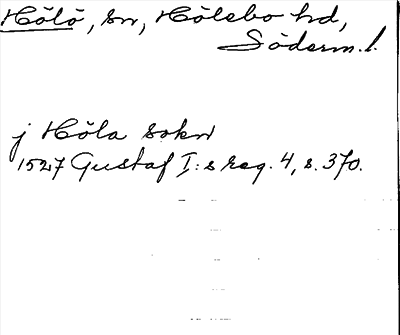 Hölö, sn, Hölebo hd,
Söderm. l.
j Höla sokn
1527 Gustaf I:s reg. 4, s. 370.